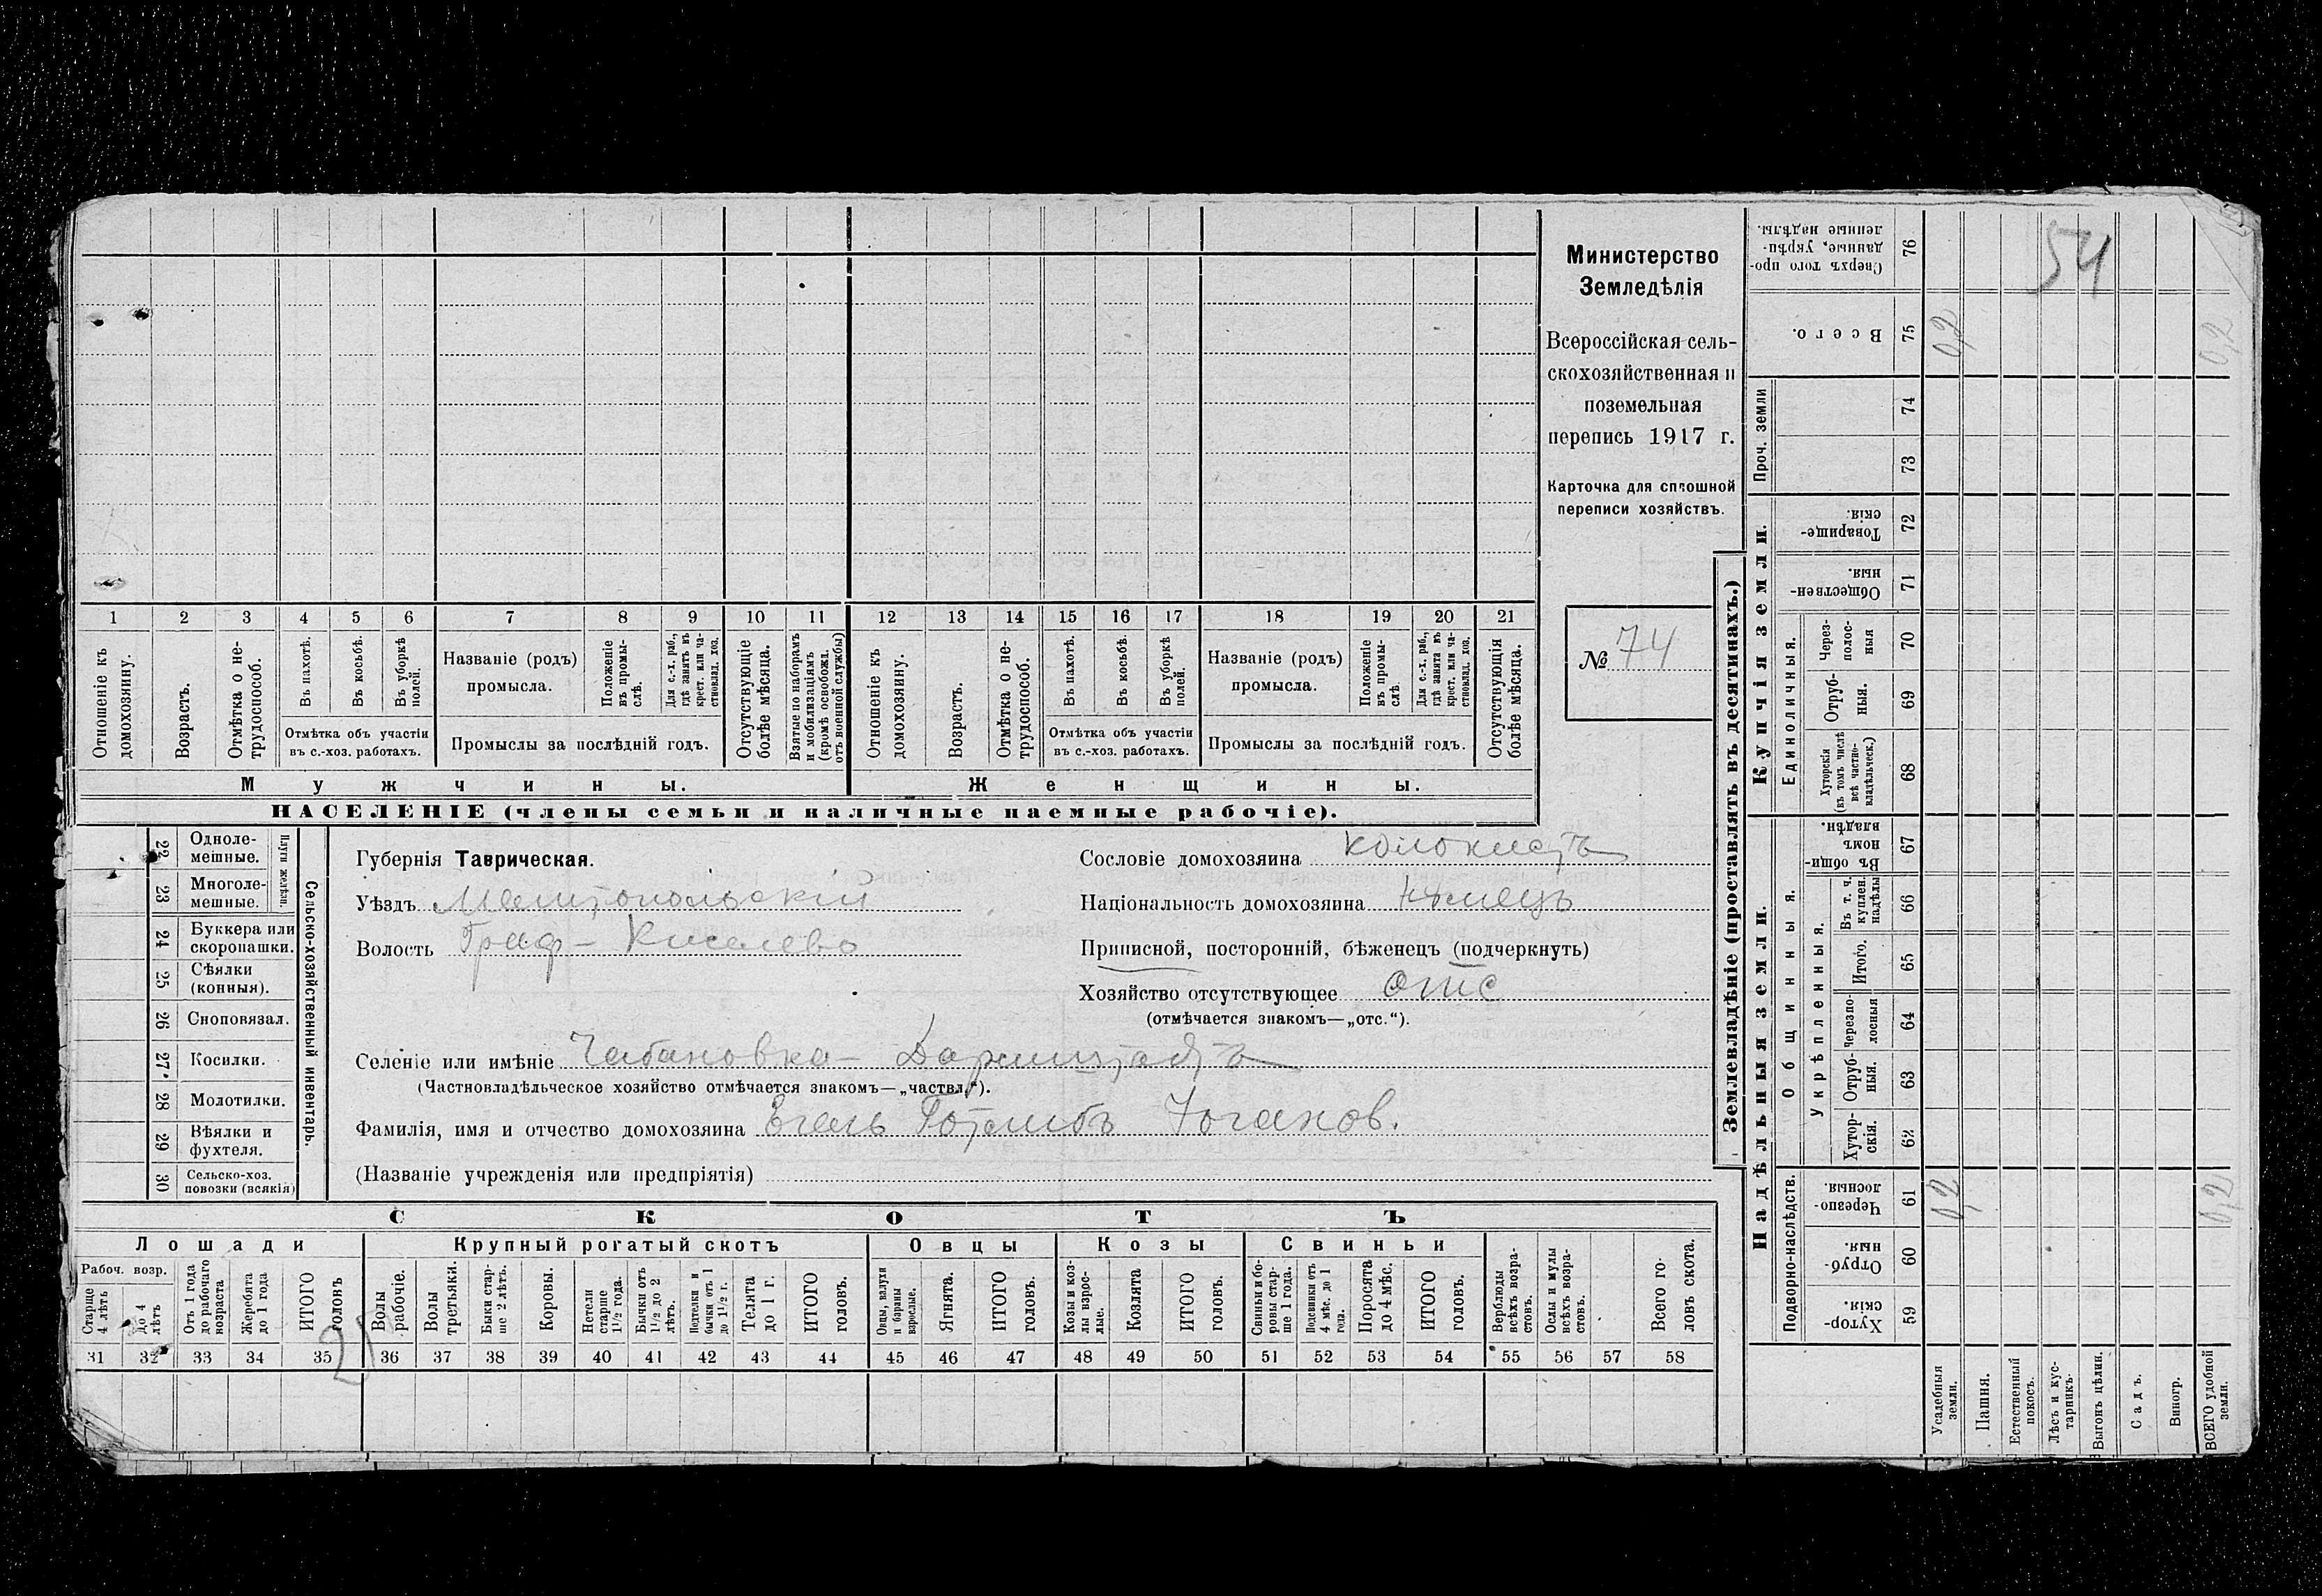 Министерство
Земледѣлія
Всероссійская сель-
скохозяйственная и
поземельная
перепись 1917 г.
Карточка для сплошной
переписи хозяйствъ.
№ 74
1 2 3 4 5 6 7 8 9 10 11 12 13 14 15 16 17 18 19 20 21
Отношеніе къ домохозяину.
Возрастъ.
Отмѣтка о не-трудоспособ.
Въ пахотѣ.
Въ косьбѣ.
Въ уборкѣ полей.
Отмѣтка объ участіи
въ с.-хоз. работахъ.
Названіе (родъ)
промысла.
Положеніе въ промы-слѣ.
Для с.-х. раб., гдѣ занятъ въ крест. или ча-стновлад. хоз.
Промыслы за послѣдній годъ.
Отсутствующіе болѣе мѣсяца.
Взятые по наборамъ и мобилизаціямъ (кромѣ освобожд. отъ военной службы)
Отношеніе къ домохозяину.
Возрастъ.
Отмѣтка о не-трудоспособ.
Въ пахотѣ.
Въ косьбѣ.
Въ уборкѣ полей.
Отмѣтка объ участіи
въ с.-хоз. работахъ.
Названіе (родъ)
промысла.
Положеніе въ промы-слѣ.
Для с.-х. раб., гдѣ занята въ крест. или ча-стновлад. хоз.
Промыслы за послѣдній годъ.
Отсутствующія болѣе мѣсяца.
Мужчины.
Женщины.
НАСЕЛЕНІЕ (члены семьи и наличные наемные рабочіе).
22 Одноле-мешные.
23 Многоле-мешные.
Плуги желѣзн.
24 Буккера или скоропашки.
25 Сѣялки (конныя).
26 Сноповязал.
27 Косилки.
28 Молотилки.
29 Вѣялки и фухтеля.
30 Сельско-хоз. повозки (всякія)
Сельско-хозяйственный инвентарь.
Губернія Таврическая.
Уѣздъ Мелитопольскій
Волость Граф-Киселево
Сословіе домохозяина колонистъ
Національность домохозяина нѣмецъ
Приписной, посторонній, бѣженецъ (подчеркнуть)
Хозяйство отсутствующее отс
(отмѣчается знакомъ—„отс.“).
Селеніе или имѣніе Чабановка - Дармштадтъ
(Частновладѣльческое хозяйство отмѣчается знакомъ—„частвл.“).
Фамилія, имя и отчество домохозяина Егель Готлибъ Іоганов.
(Названіе учрежденія или предпріятія)
СКОТЪ
Лошади
Крупный рогатый скотъ
Овцы
Козы
Свиньи
Рабоч. возр.
Старше 4 лѣтъ
До 4 лѣтъ
Отъ 1 года до рабочаго возраста
Жеребята до 1 года
ИТОГО головъ
Волы рабочіе.
Волы третьяки.
Быки стар-ше 2 лѣтъ.
Коровы.
Нетели старше 1½ года.
Бычки отъ 1½ до 2 лѣтъ.
Подтелки и бычки отъ 1 до 1½ г.
Телята до 1 г.
ИТОГО головъ.
Овцы, валухи и бараны взрослые.
Ягнята.
ИТОГО головъ.
Козы и коз-лы взрос-лые.
Козлята
ИТОГО головъ.
Свиньи и бо-ровы стар-ше 1 года.
Подсвинки отъ 4 мѣс. до 1 года.
Поросята до 4 мѣс.
ИТОГО головъ.
Верблюды всѣхъ возра-стовъ.
Ослы и мулы всѣхъ возра-стовъ.
Всего го-ловъ скота.
31 32 33 34 35 36 37 38 39 40 41 42 43 44 45 46 47 48 49 50 51 52 53 54 55 56 57 58
Землевладѣніе (проставлять въ десятинахъ.)
Надѣльныя земли.
Купчія земли.
Проч. земли
Подворно-наслѣдств.
Общинныя.
Укрѣпленныя.
Единоличныя.
Сверхъ того про-данные, укрѣп-ленные надѣлы. 76
Всего. 75
74
73
Товарище-скія. 72
Обществен-ныя. 71
Через-полос-ныя 70
Отруб-ныя. 69
Хуторскія (въ томъ числѣ всѣ частно-владѣльческ.) 68
Въ общи-номъ владѣн. 67
Въ т. ч. куплен. надѣлы 66
Итого. 65
Черезпо-лосныя 64
Отруб-ныя. 63
Хутор-скія. 62
Черезпо-лосныя. 61
Отруб-ныя. 60
Хутор-скія. 59
Усадебныя земли.
Пашня.
Естественный покосъ.
Лѣсъ и кус-тарникъ.
Выгонъ цѣлин.
Садъ.
Виногр.
ВСЕГО удобной земли.
54
0,2
0,2
0,2
0,2